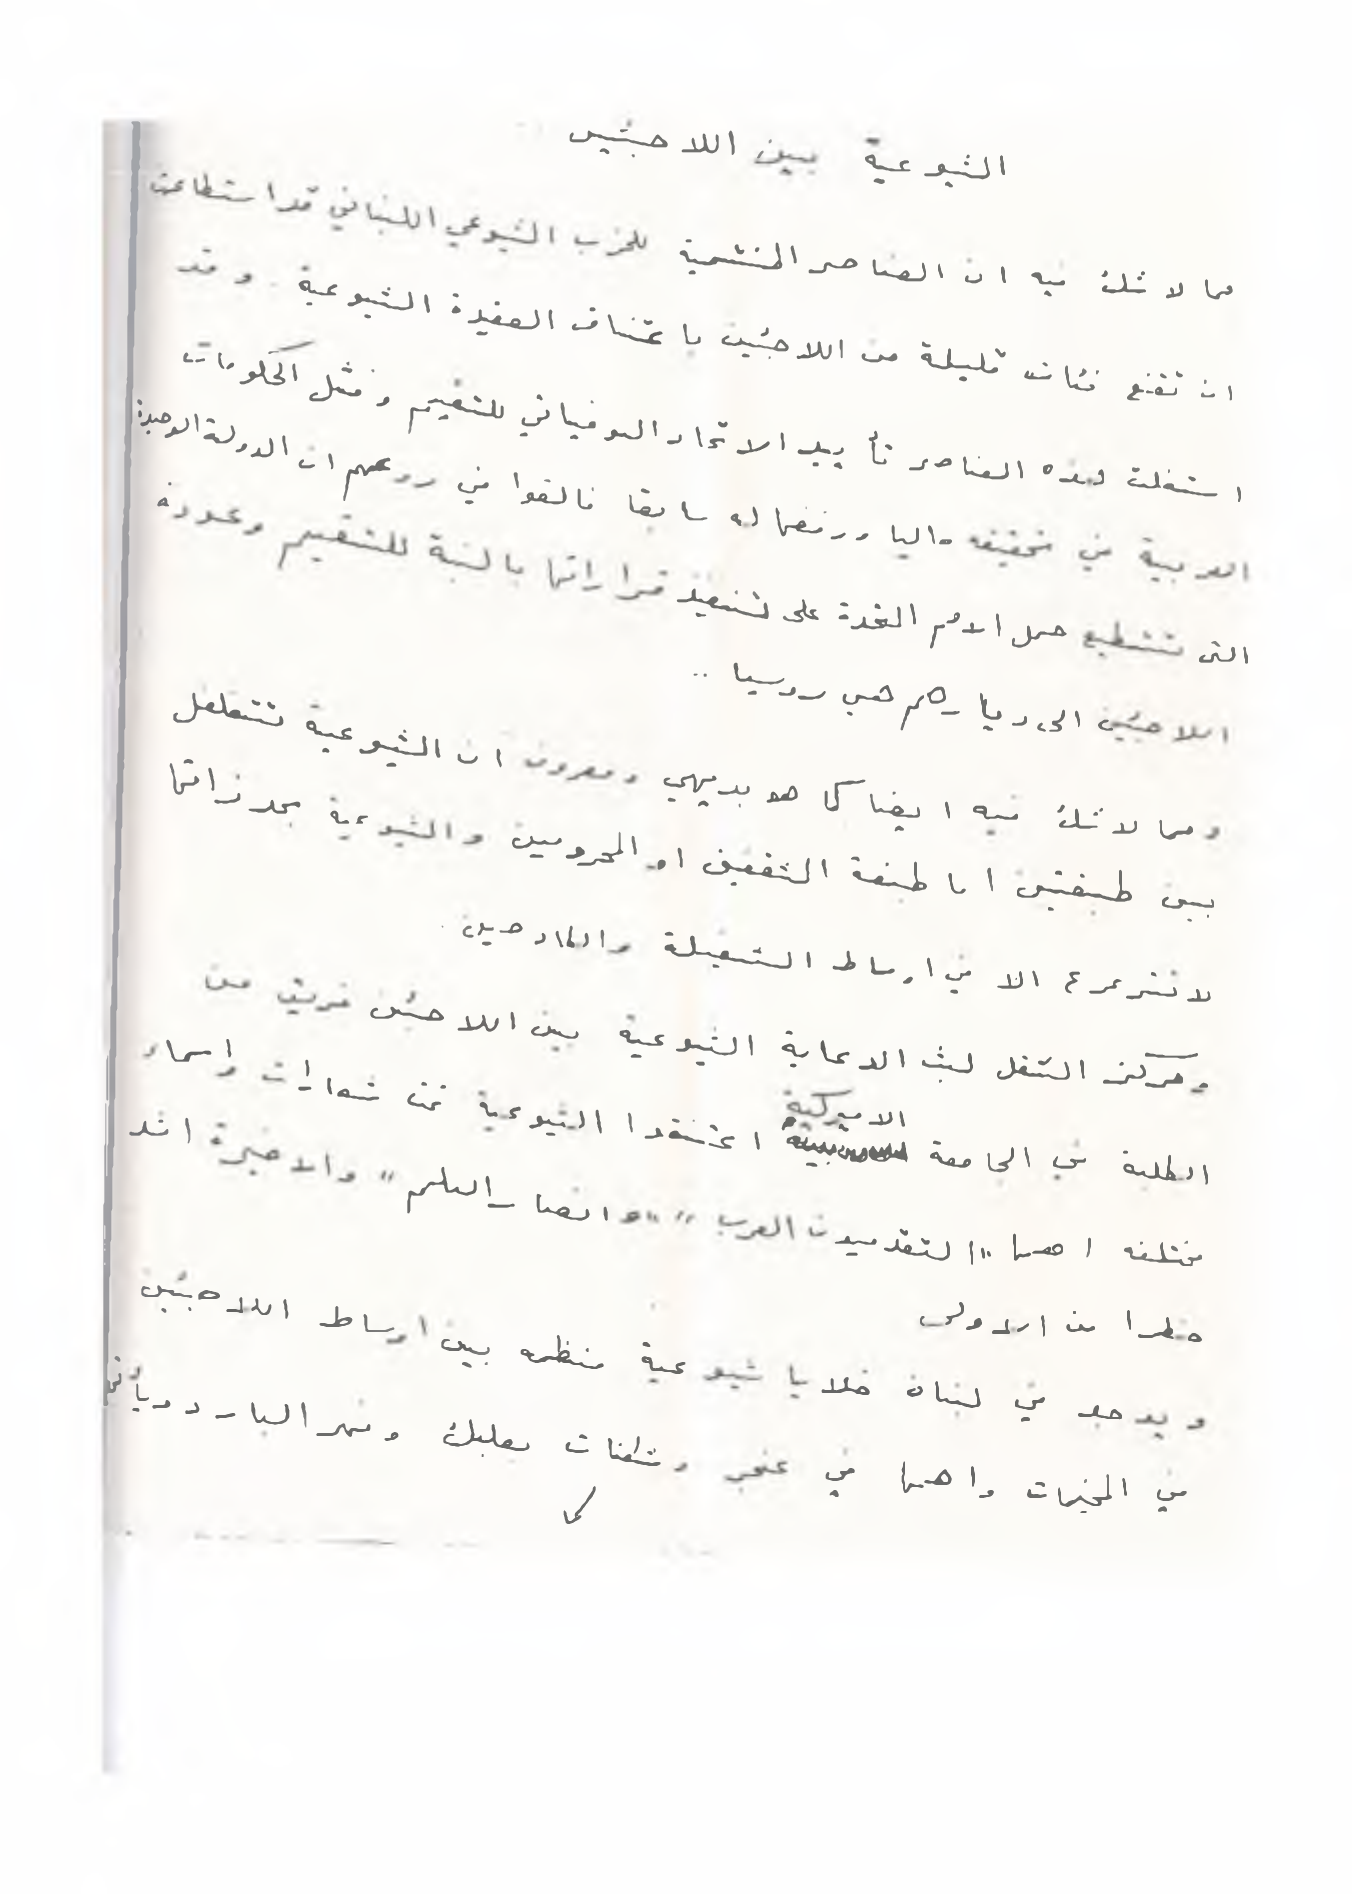 الشيوعية بين اللاجئين
مما لا شك فيه ان العناصر المنتمية للحزب الشيوعي اللبناني قد استطاعت
ان تقنع فئات قليلة من اللاجئين باعتناق العقيدة الشيوعية . وقد
استغلت هذه العناصر تأييد الاتحاد السوفياتي للتقسيم وفشل الحكومات
العربية في تحقيقه حاليا ورفضها له سابقا فالقوا في روعهم ان الدولة الوحيدة
التي تستطيع حمل الامم المتحدة على تنفيذ قراراتها بالنسبة للتقسيم وعودة
اللاجئين الى ديارهم هي روسيا ..
ومما لا شك فيه ايضا كما هو بديهي ومعروف ان الشيوعية تتغلغل
بين طبقتين اما طبقة المثقفين او المحرومين والشيوعية بحد ذاتها
لا تترعرع الا في اوساط الشغيلة والكادحين .
ومركز الثقل لبث الدعاية الشيوعية بين اللاجئين فريق من
الطلبة في الجامعة الاميركية اعتنقوا الشيوعية تحت شعارات واسماء
مختلفه اهمها "التقدميون العرب" "وانصار السلم" والاخيرة اشد
خطرا من الاولى
ويوجد في لبنان خلايا شيوعية منظمه بين اوساط اللاجئين
في المخيمات واهمها في عنجر وثكنات بعلبك ونهر البارد